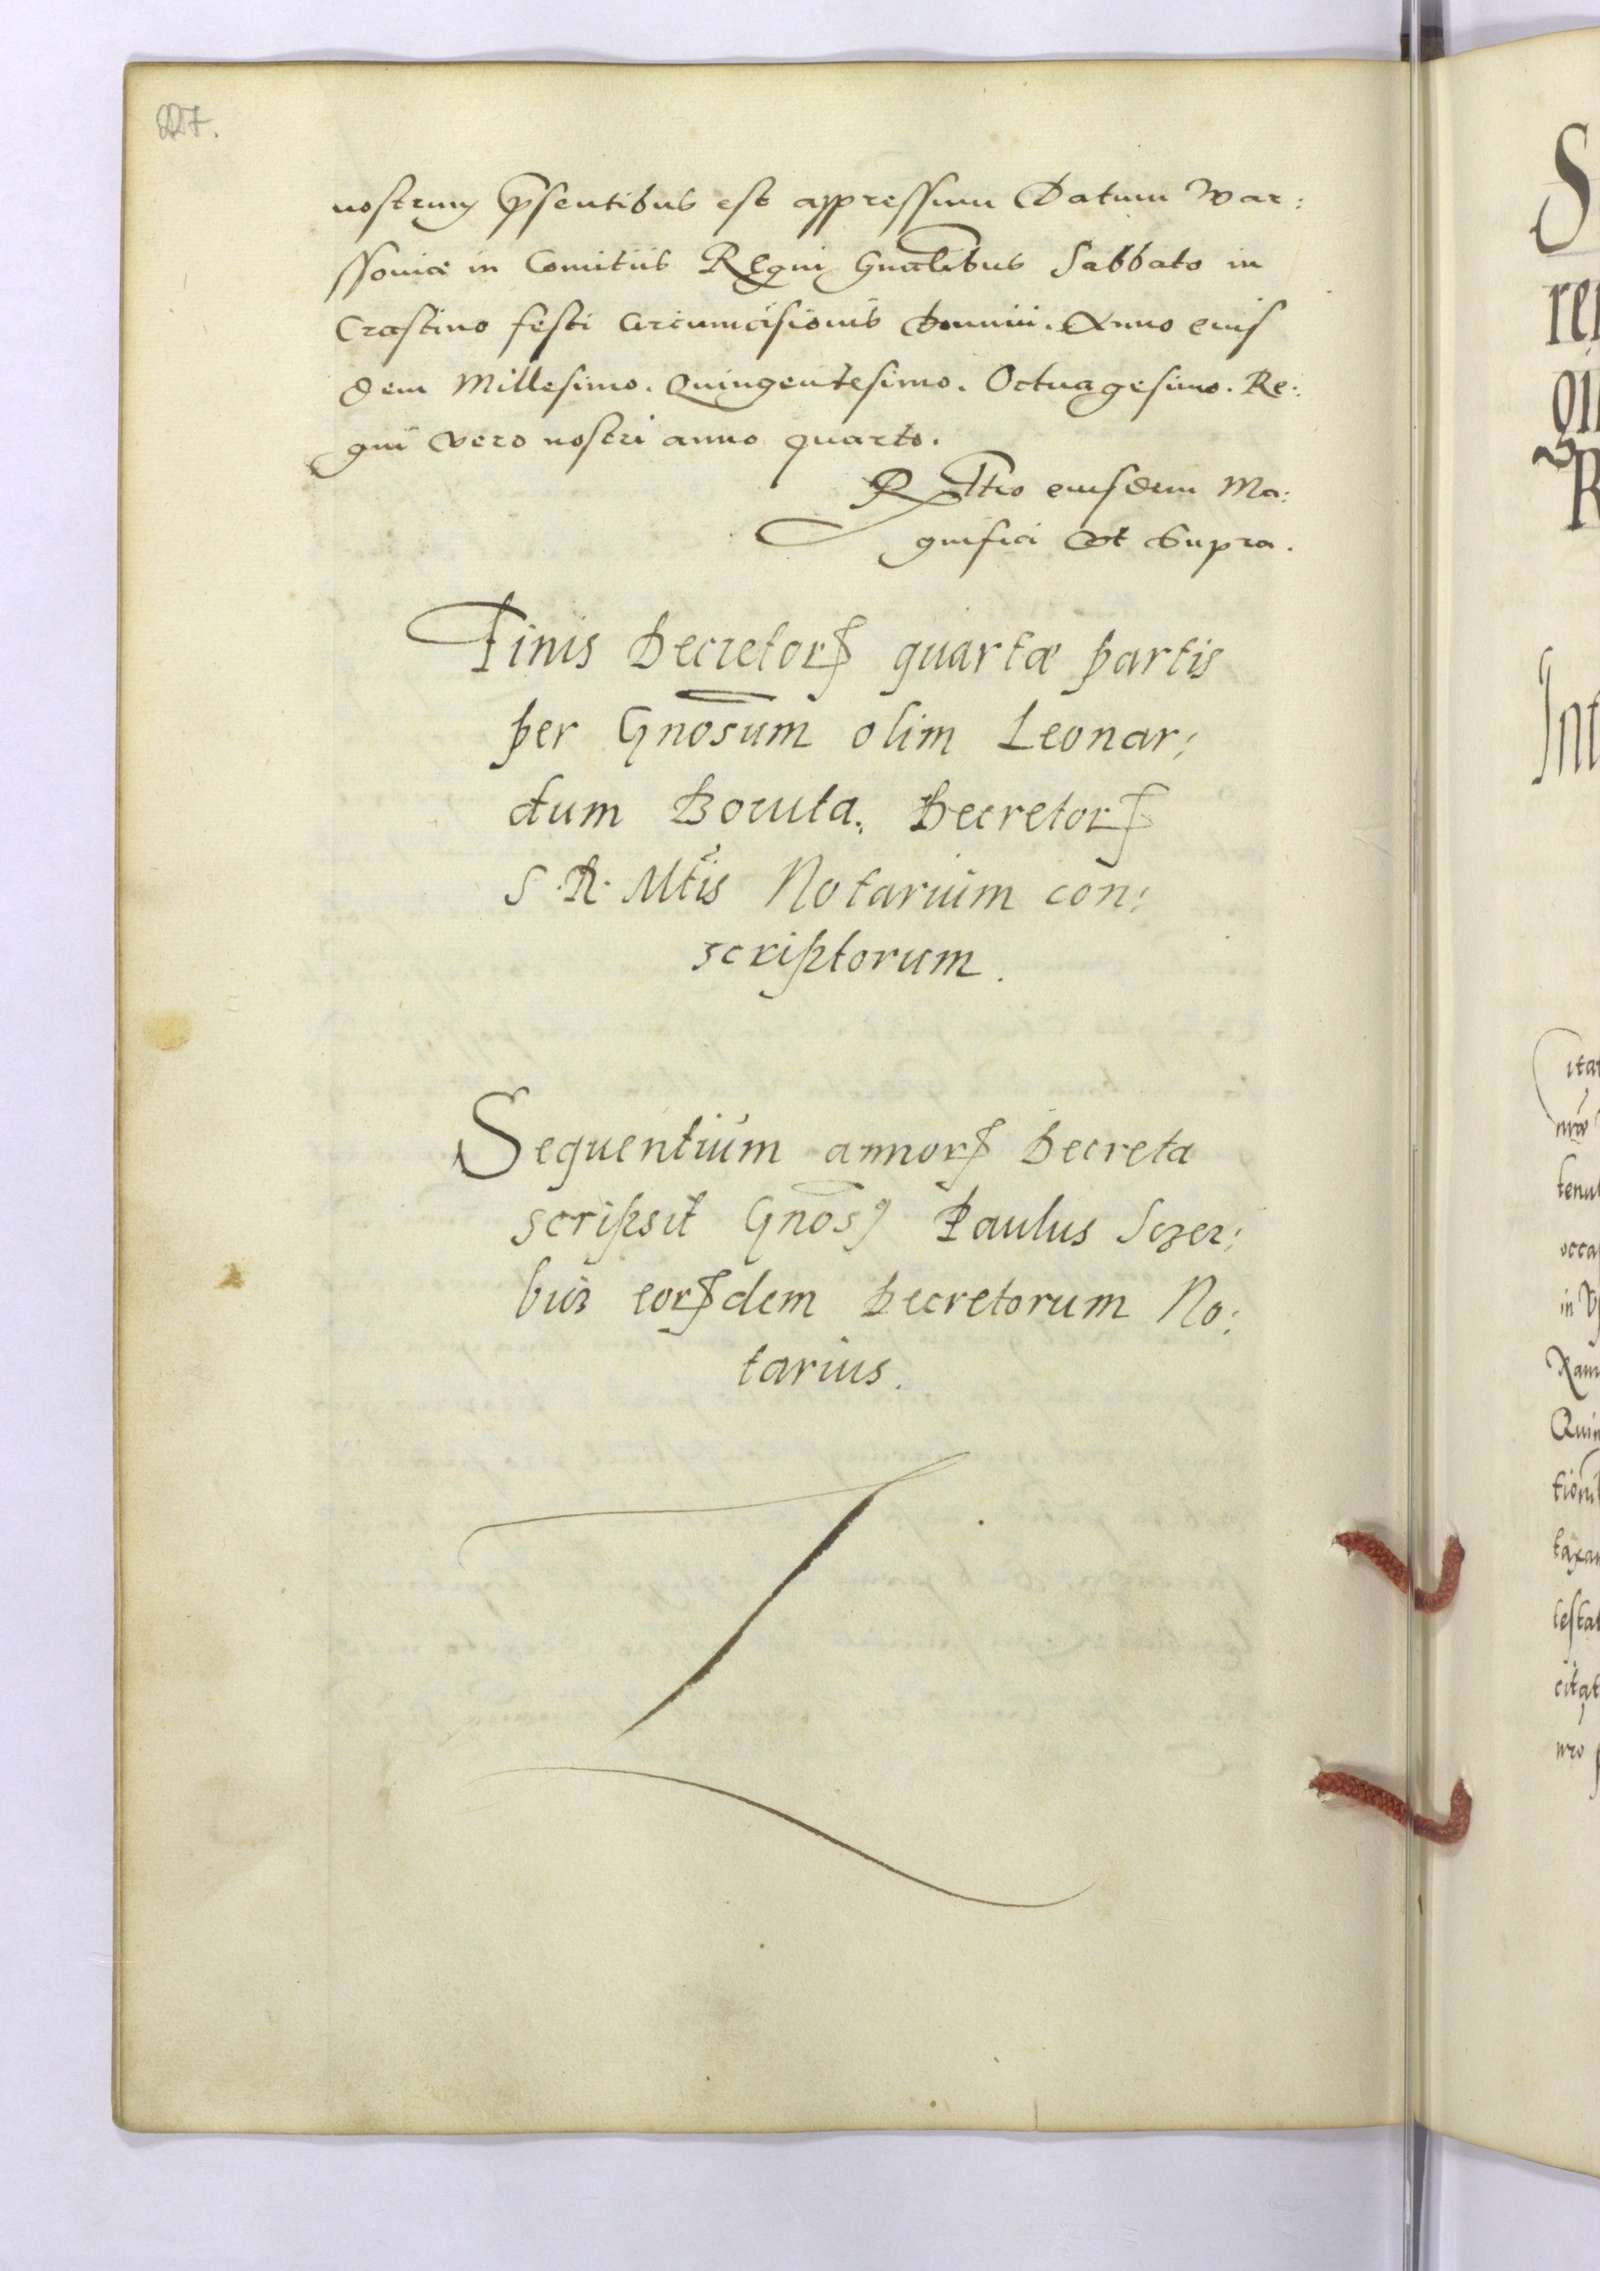 227.
nostrum p̄sentibus est appressum Datum War:
ssoviæ in Comitiis Regni Gn̄alibus Sabbato in
Crastino festi Circumcisionis Domini. Anno eius
dem Millesimo. Quingentesimo. Octuagesimo. Re:
gni vero nostri anno quarto.
R̄tio eiusdem Ma:
gnifici Ut Supra.
Finis Decretorꝝ quartæ partis
per Gn̄osum olim Leonar:
dum Bocula. Decretorꝝ
S. R. Mtis Notarium con:
scriptorum.
Sequentium annorꝝ Decreta
scripsit Gn̄osꝰ Paulus Sczer:
bicz eorꝝdem Decretorum No:
tarius.
S
R
Int
tenu
occa
in
Quin
citat
nro